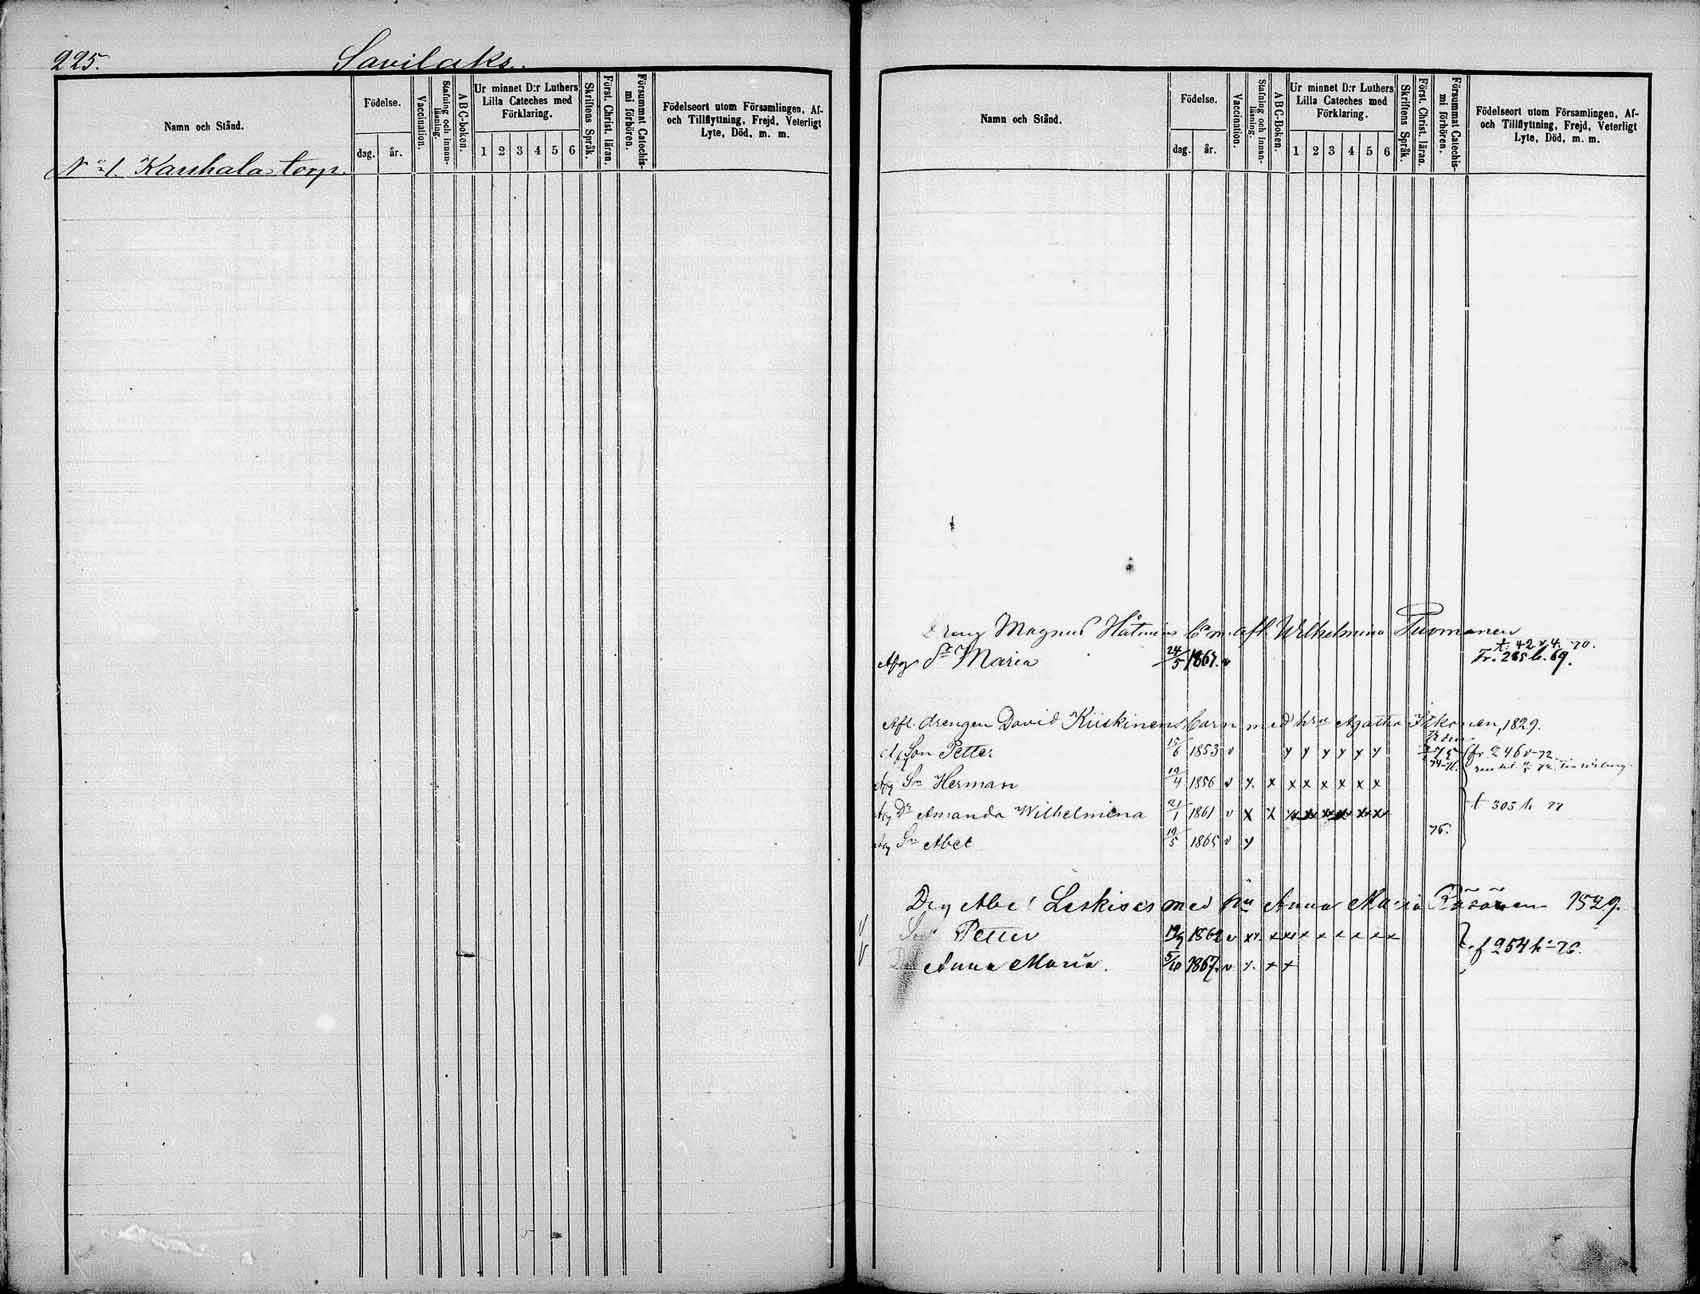 225. Savilaks.
Namn och Stånd.
Födelse.
dag. år.
Vaccination.
Stafning och Innan-läsning.
A B C-boken.
Ur minnet D:r Luthers Lilla Cateches med Förklaring.
1 2 3 4 5 6
Skriftens Språk.
Först. Christ. läran.
Försummat Catechis-mi förhören.
Födelseort utom Församlingen, Af- och Tillflyttning, Frejd, Veterligt Lyte, Död, m. m.
No 1. Karhala torp.
Namn och Stånd.
Födelse.
dag. år.
Vaccination.
Stafning och Innan-läsning.
A B C-boken.
Ur minnet D:r Luthers Lilla Cateches med Förklaring.
1 2 3 4 5 6
Skriftens Språk.
Först. Christ. läran.
Försummat Catechis-mi förhören.
Födelseort utom Församlingen, Af- och Tillflyttning, Frejd, Veterligt Lyte, Död, m. m.
Dreng Magnus afl. Wilhelmina Tuomanen
Maria 24/5 1867. v Fr. 285 h. 69.
Afl. drengen David Kiiskinens barn med hru Agatha Itkonen, 1829.
Son Petter 15/6 1853 v y y y y y y fr. 246 v-72
Sn Herman 19/4 1856 v x. x x x x x x x
Dr Amanda Wilhelmina 21/1 1861 v x x x x x x x x t 305 h 77
Sn Abel 19/5 1865 v y 76.
Drg Abel Leskises med hu Anna Maria Räsänen 1829.
Petter 19/9 1862 v x x. x x x x x x x f 254 h-76.
Anna Maria. 5/10 1867. v x. x x